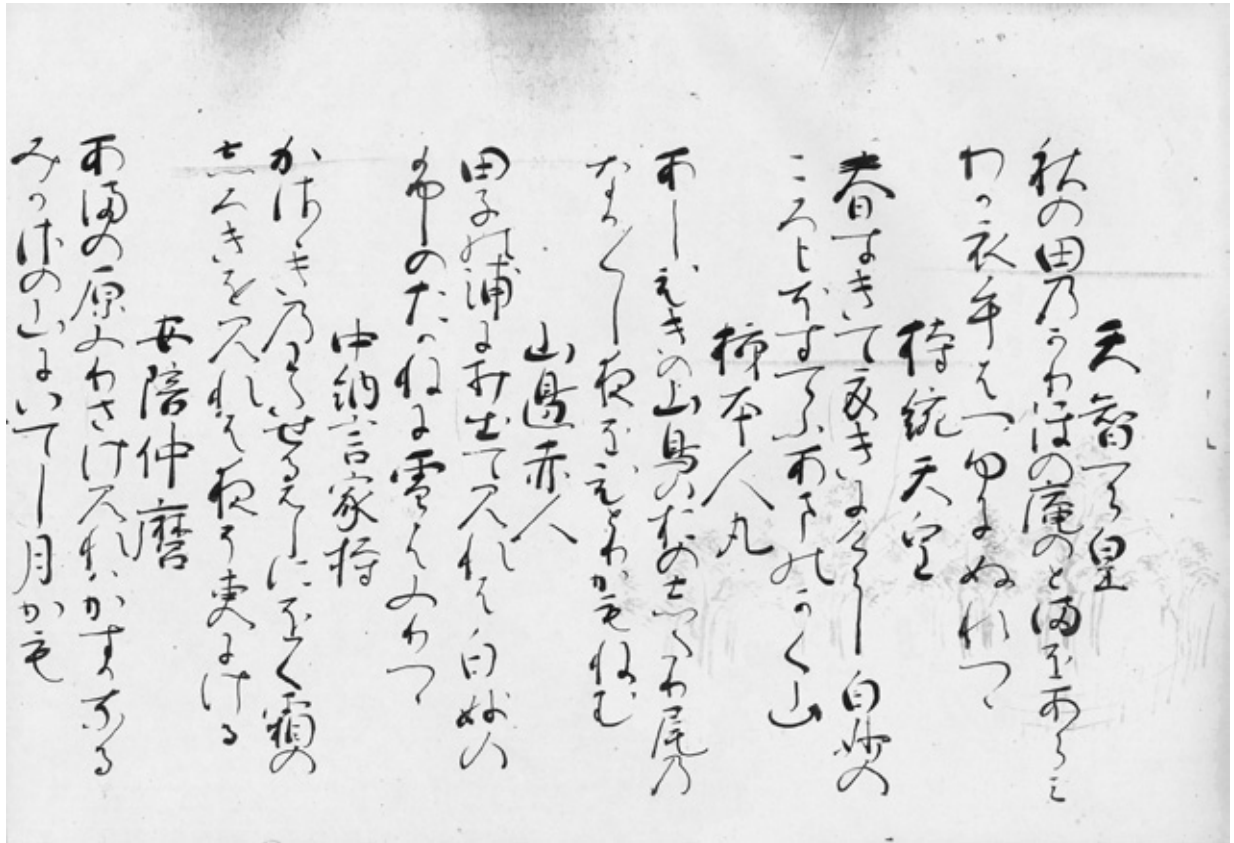 天智天皇
秋の田乃かりほの庵のとまをあらみ
わか衣手は露にぬれつゝ
持統天皇
春すきて夏きにけらし白妙の
ころもほすてふあまのかく山
柿本人丸
あしひきの山鳥のおのしたり尾乃
なか〳〵し夜をひとりかもねむ
山邉赤人
田子の浦にうち出て見れは白妙の
ふしのたかねに雪はふりつゝ
中納言家持
かさゝき乃わたせるはしにをく霜の
しろきを見れは夜そ更にける
安陪仲麿
あまの原ふりさけ見れはかすかなる
みかさの山にいてし月かも